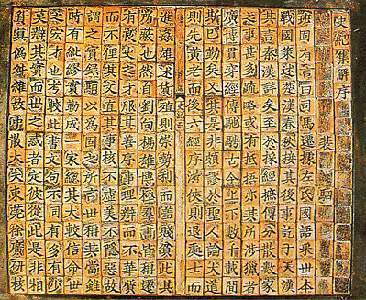 史記集解序
裴駰
班固有言曰司馬遷據左氏國語采世本
戰國策述楚漢春秋接其後事訖于天漢
其言秦漢詳矣至於採經摭傳分散數家
之事甚多疏略或有抵捂亦其所涉獵者
廣博貫穿經傳馳騁古今上下數千載間
斯已勤矣又其是非頗謬於聖人論大道
則先黃老而後六經序游俠則退處士而
進姦雄述貨殖則崇勢利而羞賤貧此其
所蔽也然自劉向楊雄博極羣書皆稱遷
有良史之才服其善序事理辯而不華質
而不俚其文直其事核不虛美不隱惡故
謂之實錄駰以為固之所言世稱其當雖
時有紕繆實勒成一家總其大較信命世
之宏才也考較此書文句不同有多有少
莫辯其實而世之惑者定彼從此是非相
貿真偽舛雜故中散大夫東莞徐廣研核